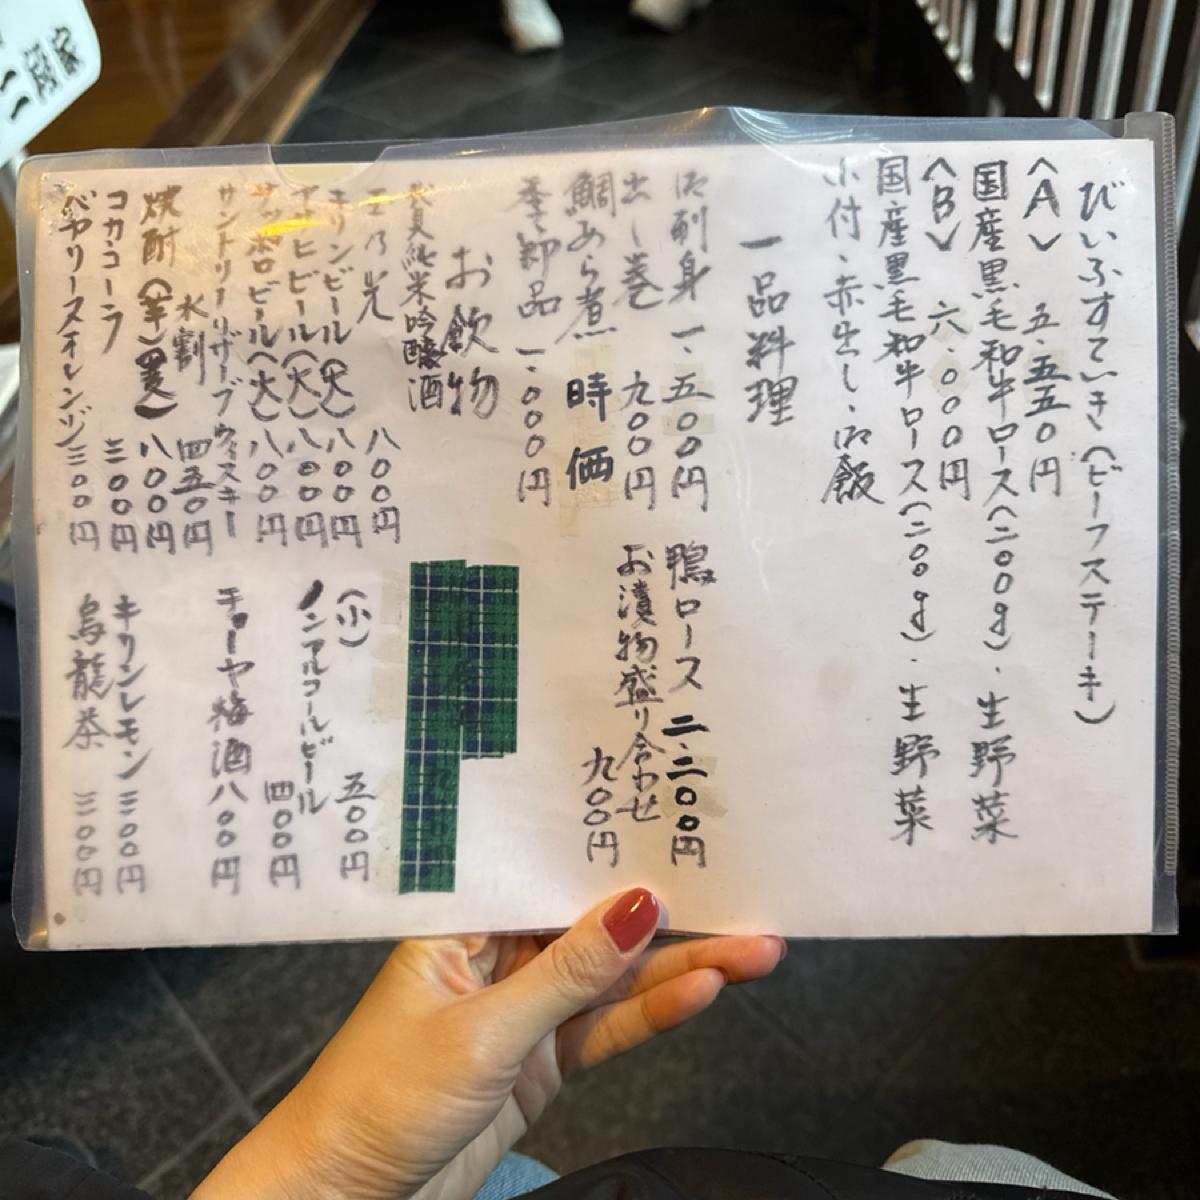 びいふすてぃき(ビーフステーキ)
〈A〉 五.五五〇円
国産黒毛和牛ロース(二〇〇g)、生野菜
〈B〉 六.〇〇〇円
国産黒毛和牛ロース(二〇〇g)、生野菜
小付、赤出し、御飯
一品料理
御刺身 一.五〇〇円
鴨ロース 二.二〇〇円
出し巻 九〇〇円
お漬物盛り合わせ 九〇〇円
鯛あら煮 時価
季節品 一.〇〇〇円
お飲物
純米吟醸酒
玉乃光 八〇〇円
キリンビール(大) 八〇〇円
(小) 五〇〇円
アサヒビール(大) 八〇〇円
ノンアルコールビール 四〇〇円
サッポロビール(大) 八〇〇円
サントリーリザーブウィスキー
水割 四五〇円
チョーヤ梅酒 八〇〇円
焼酎(芋)(麦) 八〇〇円
コカコーラ 三〇〇円
キリンレモン 三〇〇円
バヤリースオレンジ 三〇〇円
烏龍茶 三〇〇円